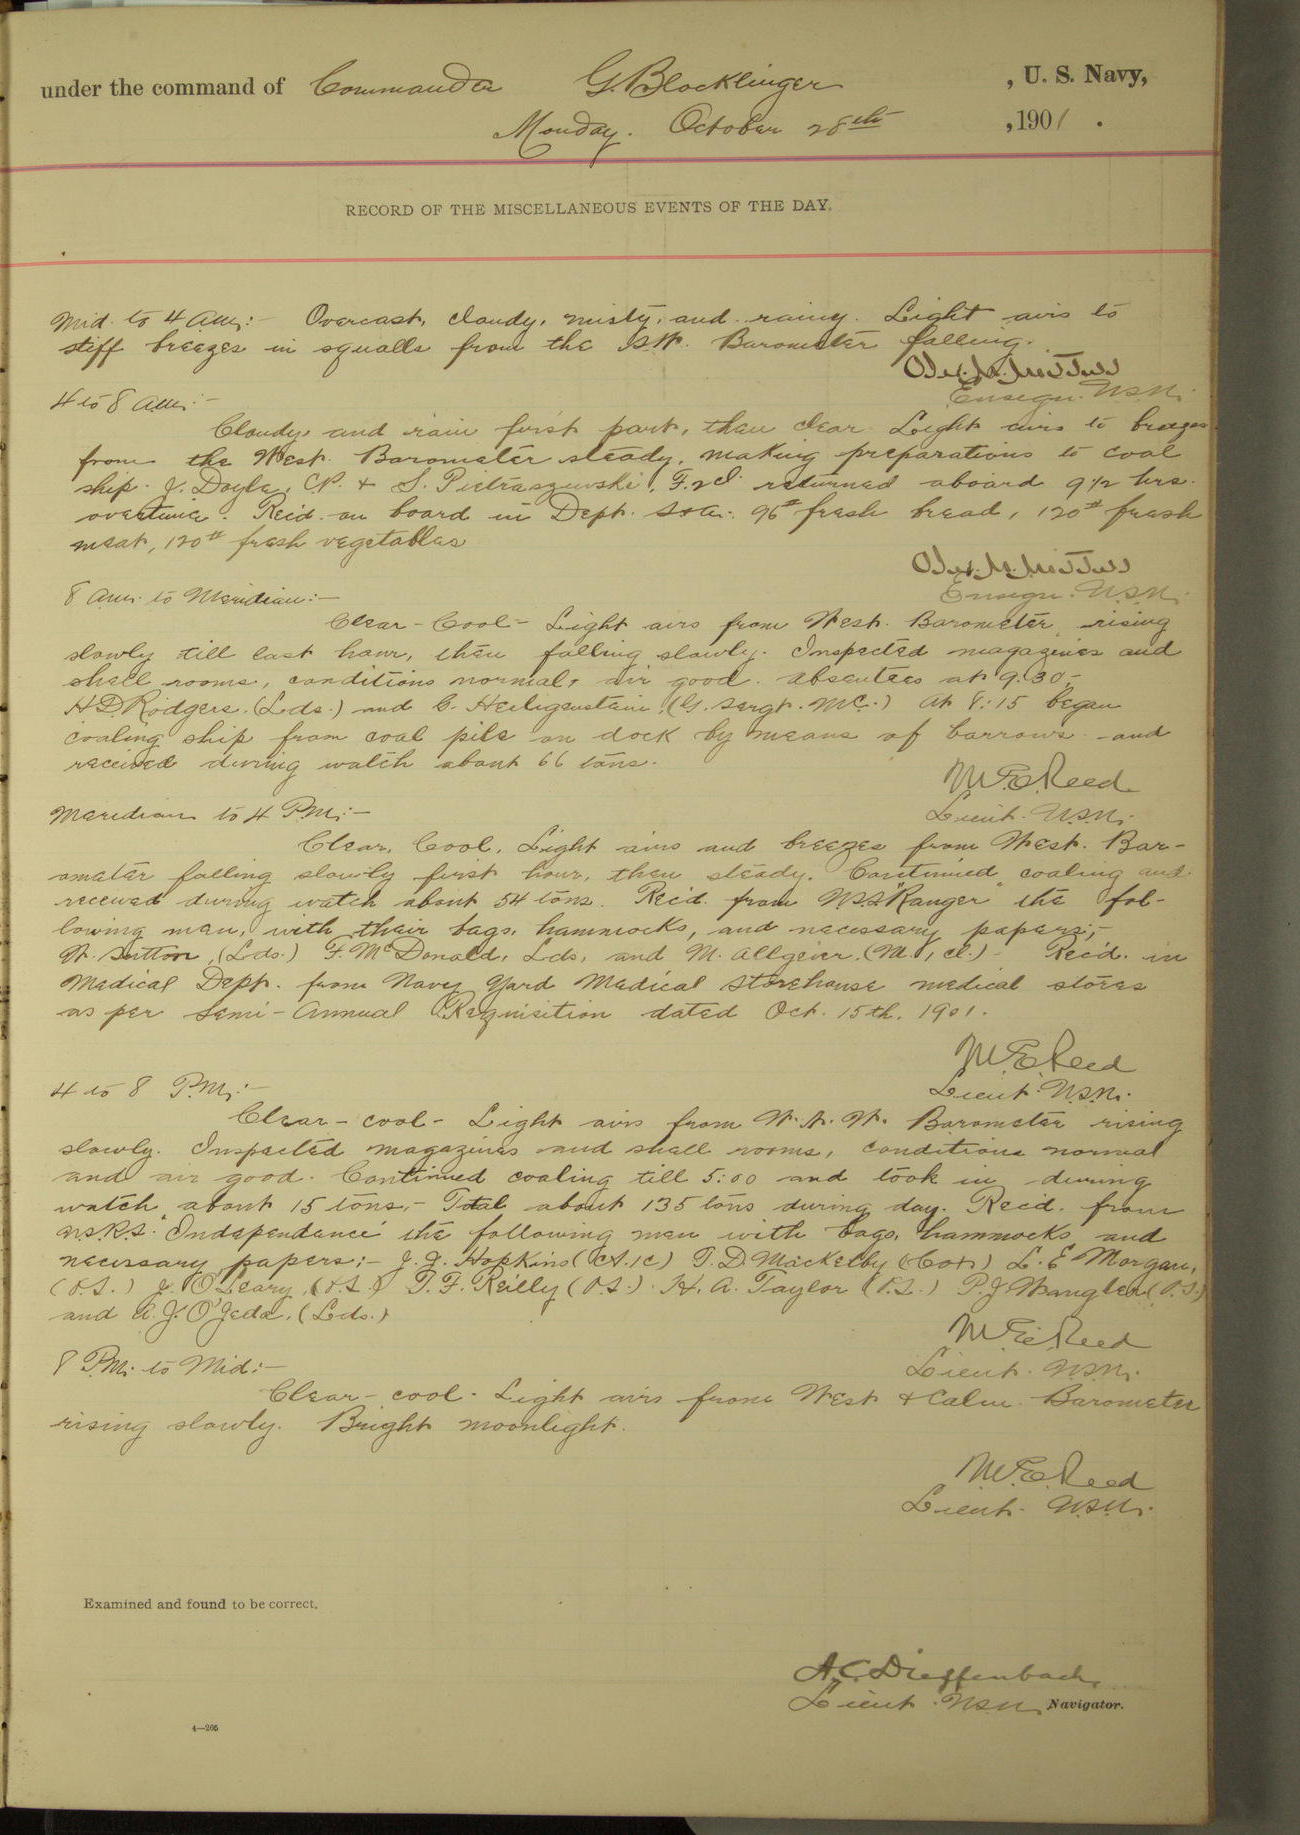 under the command of Commander G. Blocklinger , U. S. Navy,
Monday. October 28th , 1901 .
RECORD OF THE MISCELLANEOUS EVENTS OF THE DAY.
Mid. to 4 a.m.:- Overcast, cloudy, misty, and rainy. Light airs to
stiff breezes in squalls from the S.W. Barometer falling.
Ensign. U.S.N.
4 to 8 a.m.:-
Cloudy and rain first part, then clear. Light airs to breezes
from the West. Barometer steady, making preparations to coal
ship. J. Doyle, C.P. & S. Pietraszewski, F. 2 cl. returned aboard 9 1/2 hrs.
overtime. Rec'd. on board in Dept. S & A. 96# fresh bread, 120# fresh
meat, 120# fresh vegetables
Ensign. U.S.N.
8 a.m. to Meridian:-
Clear - Cool - Light airs from West. Barometer rising
slowly till last hour, then falling slowly. Inspected magazines and
shell rooms, conditions normal, air good. Absentees at 9:30 -
H.D. Rodgers. (Lds.) and C. Heiligenstein, (G. Sergt. M.C.) At 8:15 began
coaling ship from coal pile on dock by means of barrows and
received during watch about 66 tons.
M. E. Reed
Lieut. U.S.N.
Meridian to 4 P.M.:-
Clear, Cool, Light airs and breezes from West. Bar-
ometer falling slowly first hour, then steady. Continued coaling and
received during watch about 54 tons. Rec'd. from U.S.S. "Ranger" the fol-
lowing men, with their bags, hammocks, and necessary papers;-
W. Sutton, (Lds.) F. McDonald, Lds, and M. Allgeier, (M., cl.) - Rec'd. in
Medical Dept. from Navy Yard Medical Storehouse medical stores
as per Semi-Annual Requisition dated Oct. 15th, 1901.
M. E. Reed
Lieut. U.S.N.
4 to 8 P.M.:-
Clear - cool - Light airs from W.N.W. Barometer rising
slowly. Inspected magazines and shell rooms, conditions normal
and air good. Continued coaling till 5:00 and took in during
watch about 15 tons. - Total about 135 tons during day. Rec'd. from
U.S.R.S. "Independence" the following men with bags, hammocks and
necessary papers;- J. G. Hopkins (C.A.1c) T. D. Mackelby (Cox) L. E. Morgan,
(O.S.) J. O'Leary, (O.S.) T. F. Reilly (O.S.) H. A. Taylor (O.S.) P. J. Wangler (O.S.)
and A. J. O'Jeda, (Lds.)
M. E. Reed
Lieut. U.S.N.
8 P.M. to Mid:-
Clear - cool - Light airs from West & Calm. Barometer
rising slowly. Bright moonlight.
M. E. Reed
Lieut. U.S.N.
Examined and found to be correct.
A. C. Dieffenbach,
Lieut. U.S.N. Navigator.
4—205